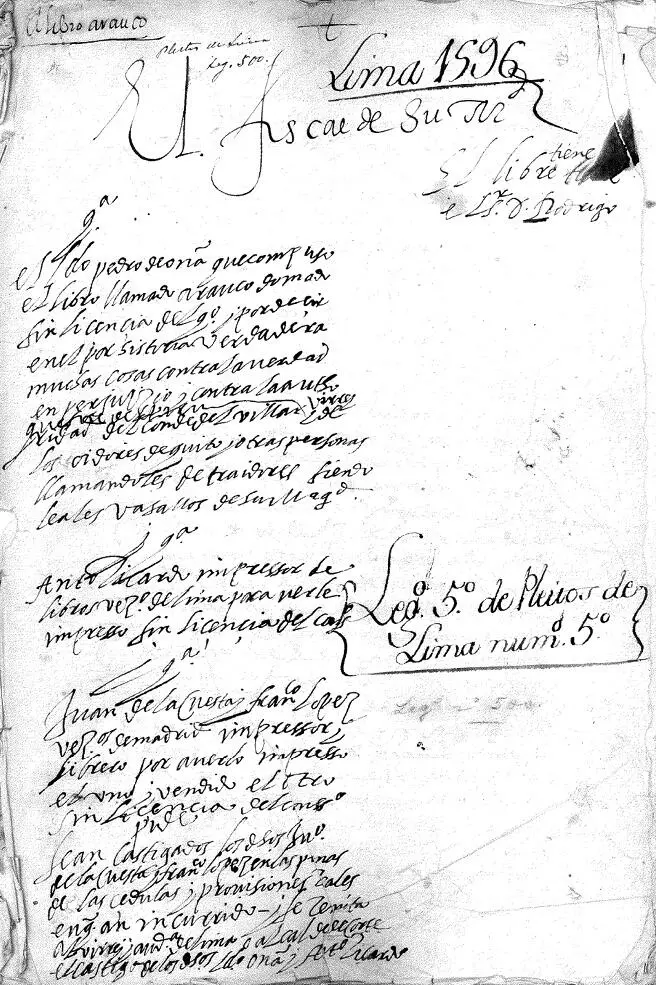 El libro arauco
Pleitos de Lima
Leg. 500.
Lima 1596
El fiscal de Su Mg
El libro tiene
el Sr. D. Rodrigo
gª
el Ldo pedro de oña que compuso
el libro llamado arauco domado
sin licencia del qo. y por decir
en el por historia verdadera
muchas cosas contra la verdad
en perjuizio y contra la autho
ridad del conde del villar virrey
los oidores de quito y otras personas
llamandoles de traidores siendo
leales vasallos de su Magd.
gª
Antº Ricardo impressor de
libros vezº de lima para verle
impresso sin licencia del
gª
Juan de la Cuesta y franº Lopez
vezºs de madrid impressor y
librero por averlo impresso
el uno y vendido el otro
sin licencia del consº
pide
sean castigados los dhos Juº.
de la Cuesta y franº lopez en las penas
de las cedulas y provisiones reales
en q an incurrido y se remita
al virrey y audª de lima
el castigo de los dhos ldo oña y Antº Ricardo
Legº. 5º de Pleitos de
Lima numº. 5º
Leg. nº 500.